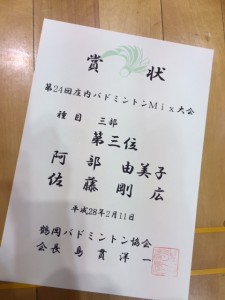 賞状
第24回庄内バドミントンMix大会
種目 三部
第三位
阿部 由美子
佐藤 剛広
平成28年2月11日
鶴岡バドミントン協会
会長 鳥貫洋一